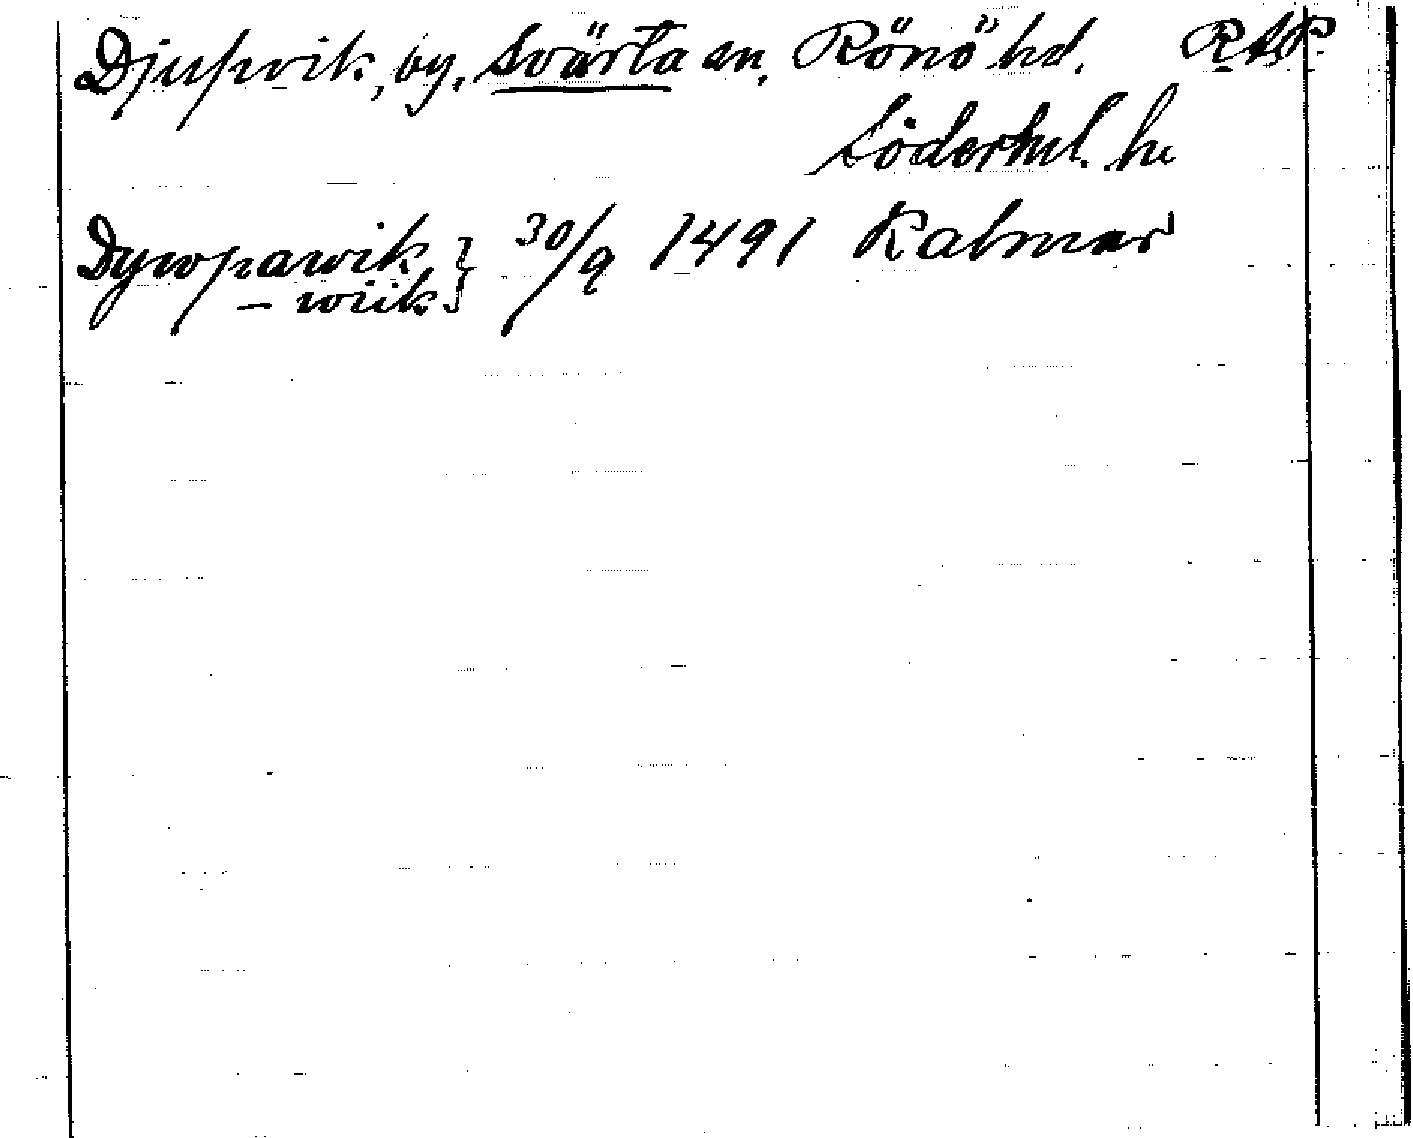 Djupvik, by, Svärta sn, Rönö hd. RAP.
Söderml. lu
Dywpawik } 30/9 1491 Kalmar
— wiik }